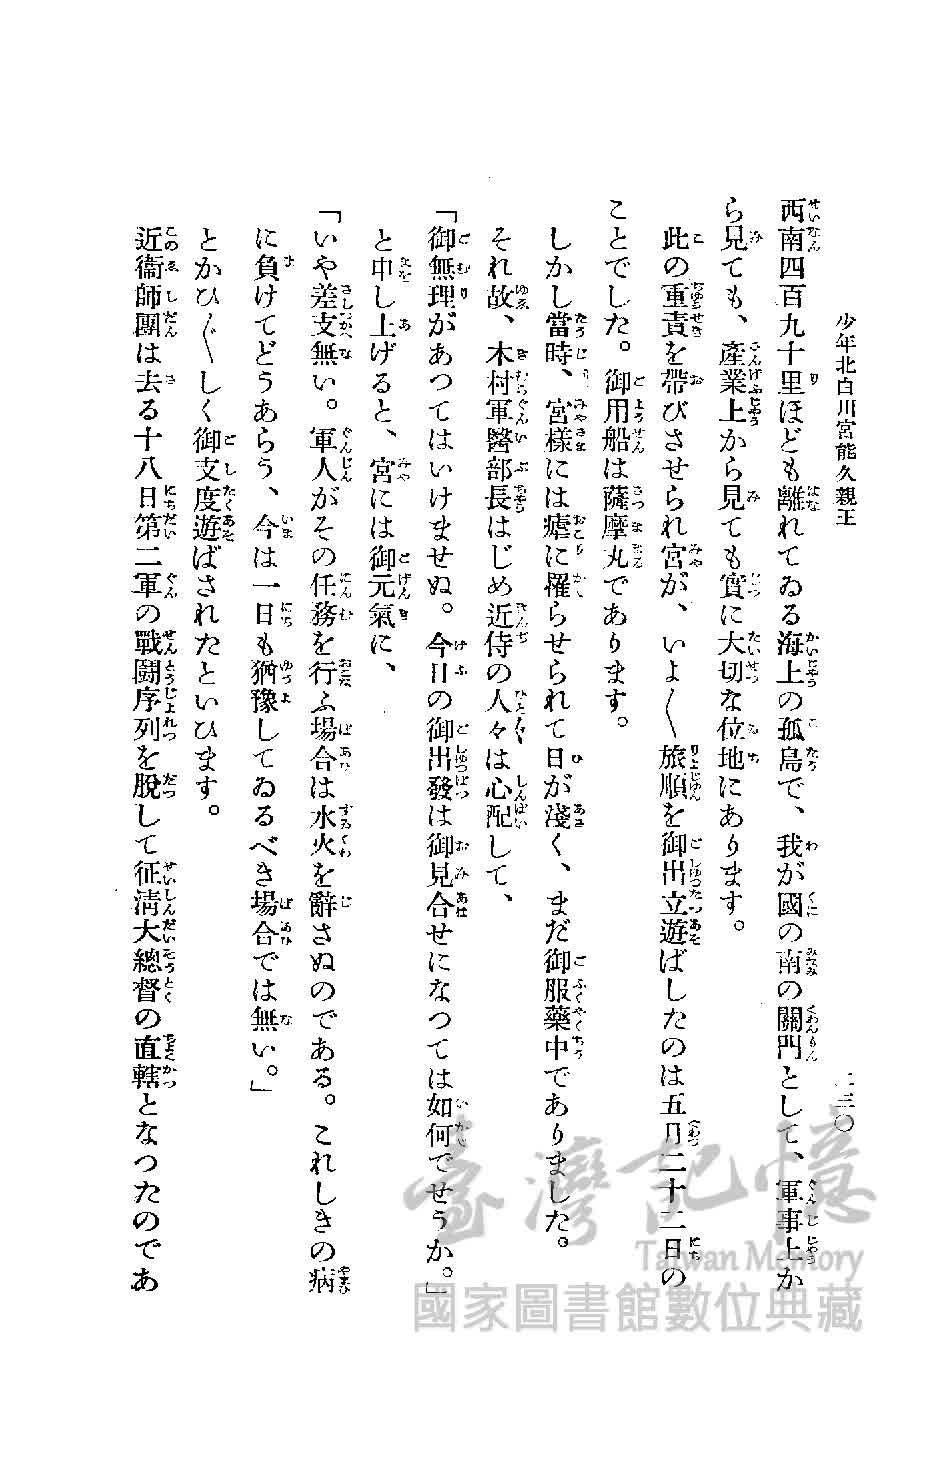 少年北白川宮能久親王
二三〇
西南四百九十里ほども離れてゐる海上の孤島で、我が國の南の關門として、軍事上か
ら見ても、產業上から見ても實に大切な位地にあります。
此の重責を帶びさせられ宮が、いよ〱旅順を御出立遊ばしたのは五月二十二日の
ことでした。御用船は薩摩丸であります。
しかし當時、宮樣には瘧に罹らせられて日が淺く、まだ御服藥中でありました。
それ故、木村軍醫部長はじめ近侍の人々は心配して、
「御無理があつてはいけませぬ。今日の御出發は御見合せになつては如何でせうか。」
と申し上げると、宮には御元氣に、
「いや差支無い。軍人がその任務を行ふ場合は水火を辭さぬのである。これしきの病
に負けてどうあらう、今は一日も猶豫してゐるべき場合では無い。」
とかひ〲しく御支度遊ばされたといひます。
近衞師團は去る十八日第二軍の戰鬪序列を脫して征淸大總督の直轄となつたのであ
臺灣記憶
Taiwan Memory
國家圖書館數位典藏